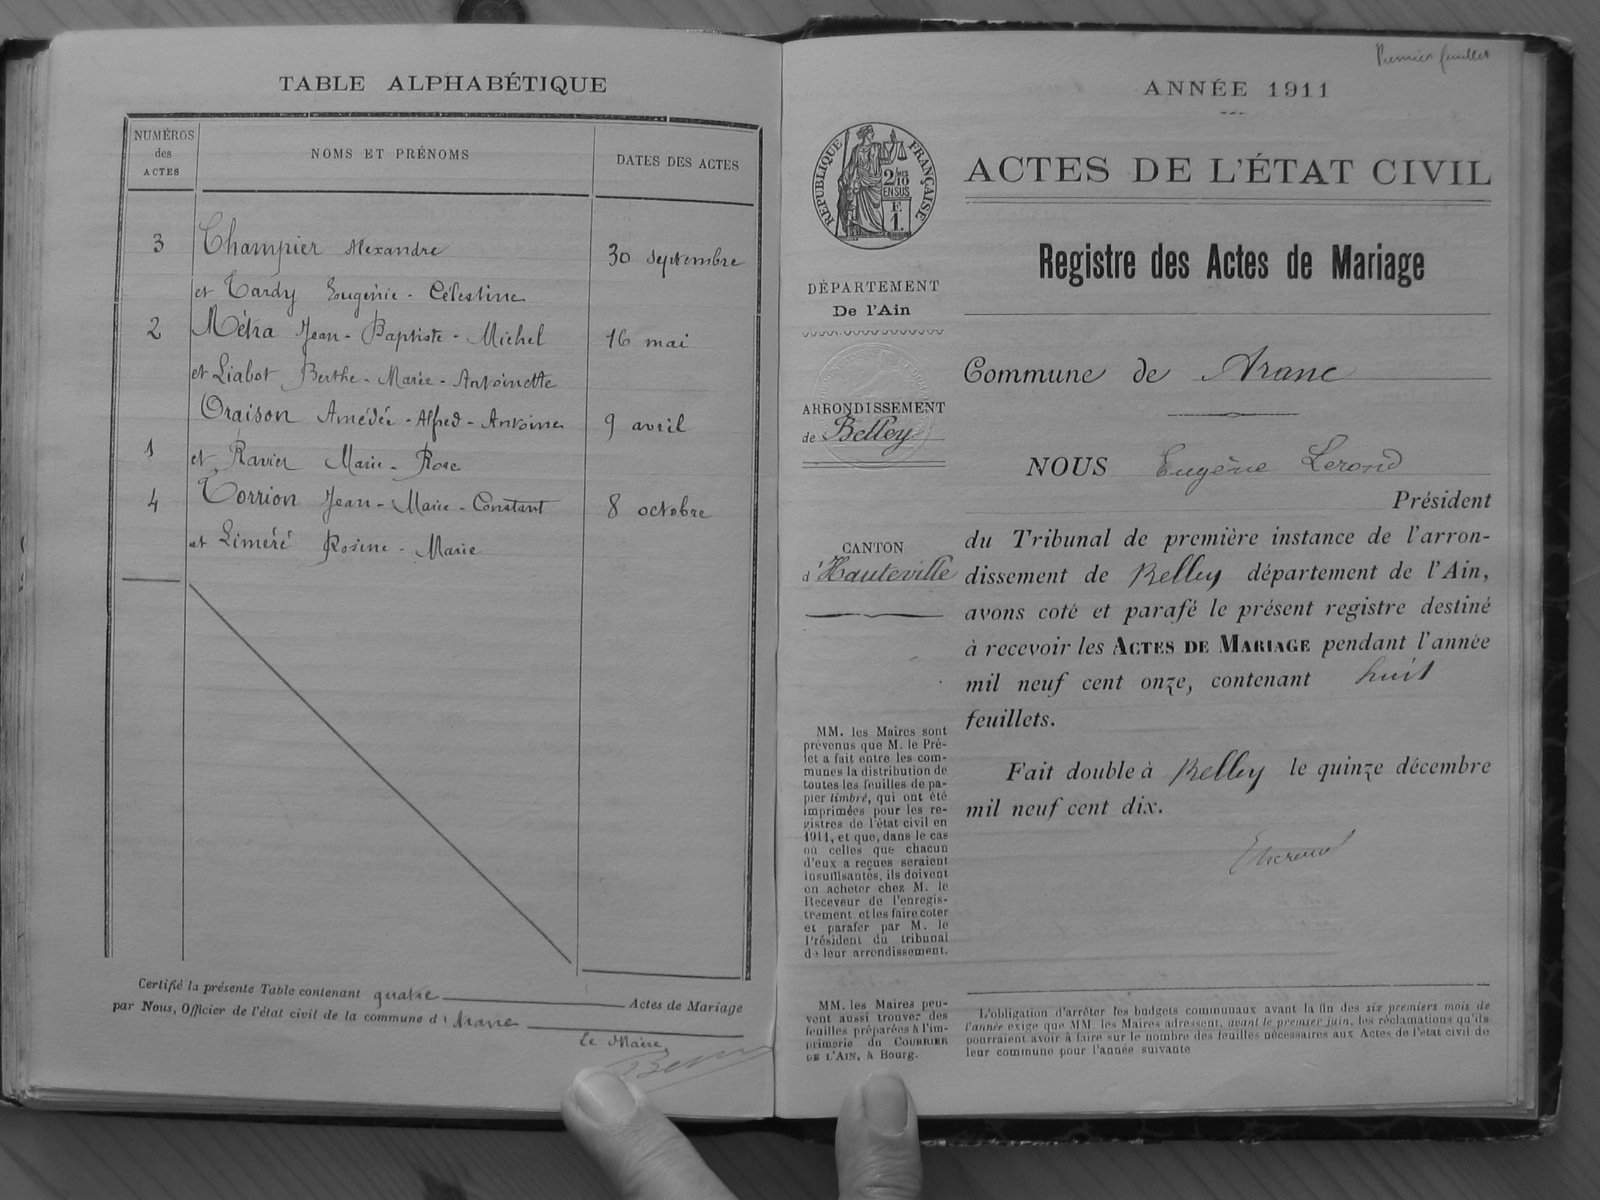 TABLE ALPHABÉTIQUE
NUMÉROS
des
ACTES
NOMS ET PRÉNOMS
DATES DES ACTES
3 Champier Alexandre 30 septembre
et Tardy Eugénie - Célestine
2 Métra Jean - Baptiste - Michel 16 mai
et Liabot Berthe - Marie - Antoinette
Oraison Amédée - Alfred - Antoine 9 avril
1 et Ravier Marie - Rose
4 Torrion Jean - Marie - Constant 8 octobre
et Liméré Rosine - Marie
Certifié la présente Table contenant quatre Actes de Mariage
par Nous, Officier de l'état civil de la commune d'Aranc
Le Maire,
Premier feuillet
ANNÉE 1911
RÉPUBLIQUE FRANÇAISE
2/10
EN SUS
F.
1.
ACTES DE L'ÉTAT CIVIL
Registre des Actes de Mariage
DÉPARTEMENT
De l'Ain
ARRONDISSEMENT
de Belley
CANTON
d'Hauteville
Commune de Aranc
NOUS Eugène Lerond
Président
du Tribunal de première instance de l'arron-
dissement de Belley département de l'Ain,
avons coté et parafé le présent registre destiné
à recevoir les ACTES DE MARIAGE pendant l'année
mil neuf cent onze, contenant huit
feuillets.
Fait double à Belley le quinze décembre
mil neuf cent dix.
MM. les Maires sont
prévenus que M. le Pré-
fet a fait entre les com-
munes la distribution de
toutes les feuilles de pa-
pier timbré, qui ont été
imprimées pour les re-
gistres de l'état civil en
1911, et que, dans le cas
où celles que chacun
d'eux a reçues seraient
insuffisantes, ils doivent
en acheter chez M. le
Receveur de l'enregis-
trement et les faire coter
et parafer par M. le
Président du tribunal
de leur arrondissement.
MM. les Maires peu-
vent aussi trouver des
feuilles préparées à l'im-
primerie du COURRIER
DE L'AIN, à Bourg.
L'obligation d'arrêter les budgets communaux avant la fin des six premiers mois de
l'année exige que MM. les Maires adressent, avant le premier juin, les réclamations qu'ils
pourraient avoir à faire sur le nombre des feuilles nécessaires aux Actes de l'état civil de
leur commune pour l'année suivante